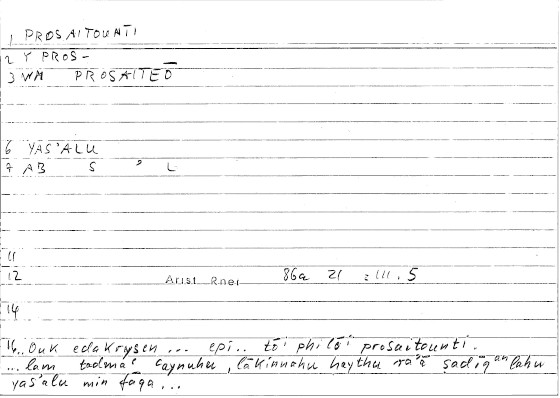 1 PROSAITOUNTI
2 Y PROS-
3 WM PROSAITEŌ
6 YAS'ALU
7 AB S ' L
11
12 Arist Rhet 86a 21 : III. 5
14
16 .. Ouk edakrysen ... epi .. tōi philōi prosaitounti.
... lam tadmaʿ ʿaynuhu, lākinnahu haythu ra'ā sadīqan lahu
yas'alu min fāqa ...